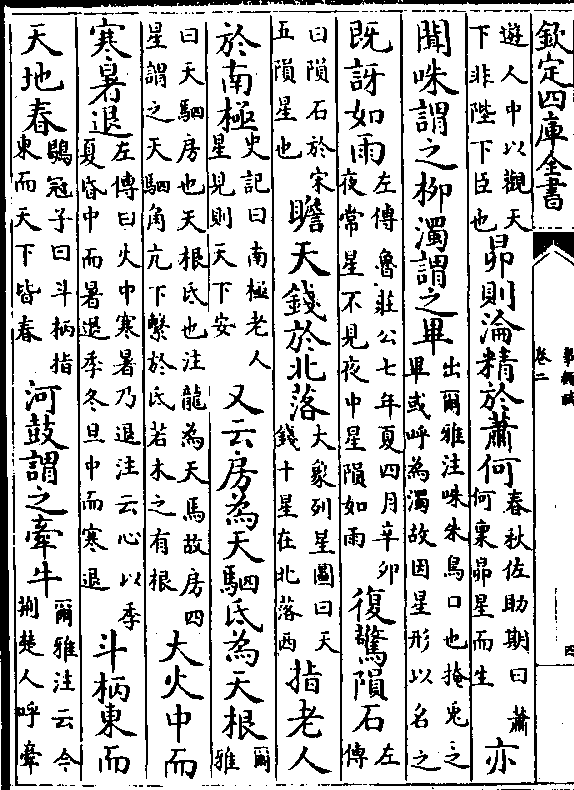 欽定四庫全書
事類賦
卷二
四
遊人中以觀天
下非陛下臣也
昴則淪精於蕭何
春秋佐助期曰蕭
何稟昴星而生
亦
聞咮謂之柳濁謂之畢
出爾雅注咮朱鳥口也掩兎之
畢或呼為濁故因星形以名之
既訝如雨
左傳魯莊公七年夏四月辛卯
夜常星不見夜中星隕如雨
復驚隕石
左
傳
曰隕石於宋
五隕星也
瞻天錢於北落
大象列星圖曰天
錢十星在北落西
指老人
於南極
史記曰南極老人
星見則天下安
又云房為天駟氐為天根
爾
雅
曰天駟房也天根氐也注龍為天馬故房四
星謂之天駟角亢下繫於氐若木之有根
大火中而
寒暑退
左傳曰火中寒暑乃退注云心以季
夏昏中而暑退季冬旦中而寒退
斗柄東而
天地春
鶡冠子曰斗柄指
東而天下皆春
河鼓謂之牽牛
爾雅注云今
荆楚人呼牽